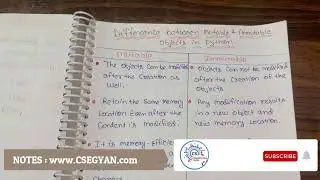 Difference between Mutable & Immutable
Objects in Python
Mutable
Immutable
The Objects can be modified
after the Creation as
well.
Objects can not be modified
after the Creation of
the Objects
Retain the Same memory
location Even after the
Content is modified.
Any modification results
in a new object and
new memory location.
It is memory-effici
NOTES : www.CSEGYAN.com
SUBSCRIBE